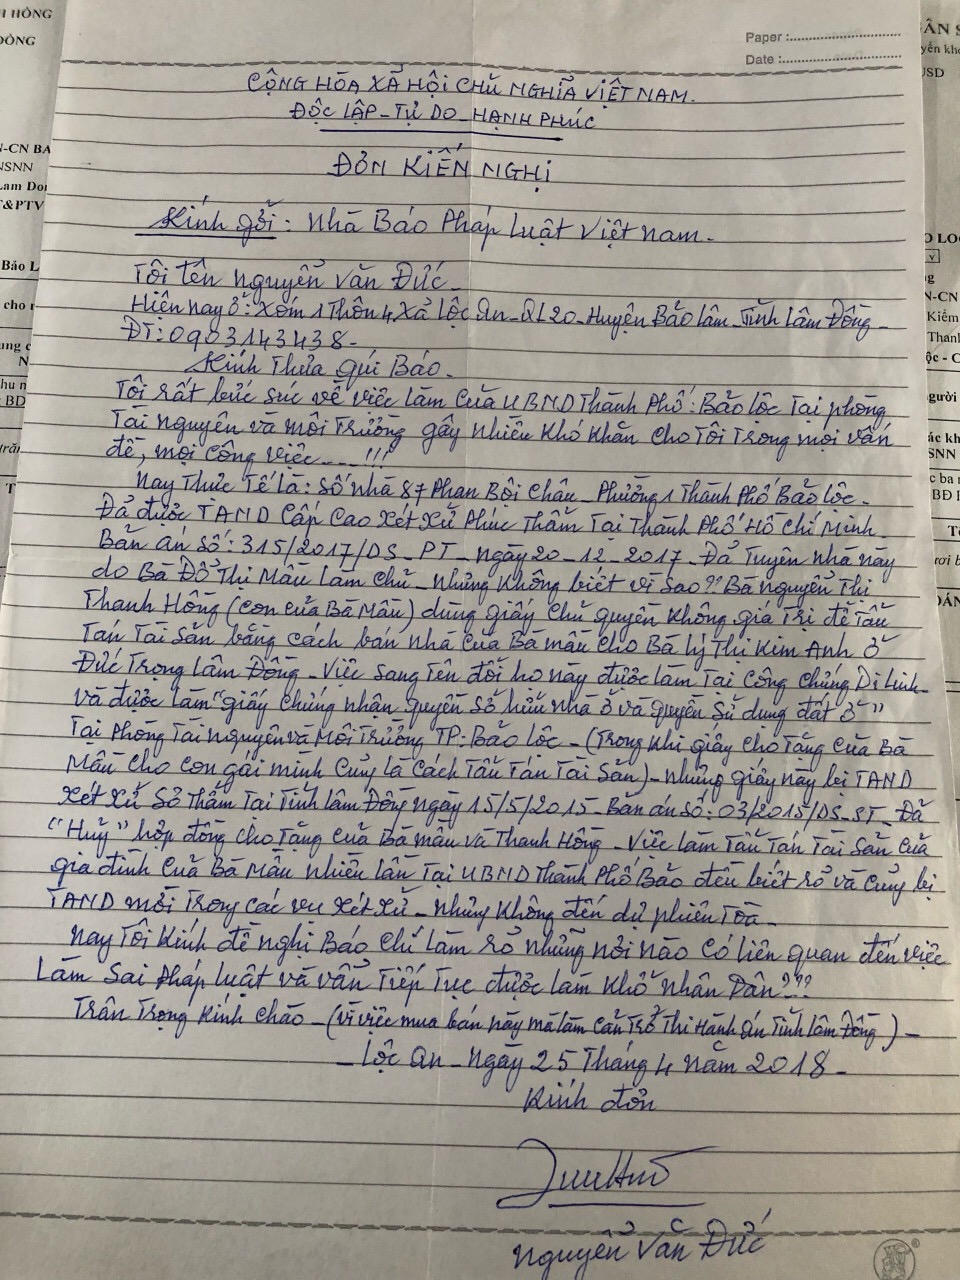 Paper :
Date :
CỘNG HÒA XÃ HỘI CHỦ NGHĨA VIỆT NAM.
ĐỘC LẬP - TỰ DO - HẠNH PHÚC
ĐƠN KIẾN NGHỊ
Kính gởi : Nhà Báo Pháp Luật Việt Nam.
Tôi tên Nguyễn Văn Đức.
Hiện nay ở: Xóm 1 Thôn 4, Xả Lộc An - QL20 - Huyện Bảo Lâm - Tỉnh Lâm Đồng -
ĐT: 0903143438 -
Kính Thưa quí Báo.
Tôi rất bức súc về việc làm của UBND Thành Phố: Bảo Lộc Tại phòng
Tài nguyên và môi Trường gây nhiều khó khăn cho Tôi Trong mọi vấn
đề, mọi công việc.....!!!
Nay Thực Tế là: Số nhà 87 Phan Bội Châu - Phường 1 Thành Phố Bảo Lộc -
Đả được TAND Cấp Cao Xét Xử Phúc Thẩm Tại Thành Phố Hồ Chí Minh
Bản án Số: 315/2017/DS-PT - ngày 20-12-2017 - Đả Tuyên nhà này
do Bà Đổ Thị Mẫu làm chủ - nhưng không biết vì sao?? Bà nguyễn Thị
Thanh Hồng (con của Bà Mẫu) dùng giấy Chủ quyền không giá Trị để Tẩu
Tán Tài Sản bằng cách bán nhà của Bà mẫu cho Bà Lý Thị Kim Anh ở
Đức Trọng Lâm Đồng - Việc sang Tên đổi họ này được làm Tại Công chứng Di Linh -
và được làm "giấy chứng nhận quyền Sở hữu nhà ở và quyền Sử dụng đất ở"
Tại Phòng Tài nguyên và Môi Trường TP: Bảo Lộc - (Trong khi giấy cho Tặng của Bà
Mẫu cho con gái mình Củng là cách Tẩu Tán Tài Sản) - nhưng giấy này bị TAND
Xét Xử Sơ Thẩm Tại Tỉnh Lâm Đồng ngày 15/5/2015 - Bản án Số: 03/2015/DS-ST - Đả
"Huỷ" hợp đồng cho Tặng của Bà mẫu và Thanh Hồng - Việc làm Tẩu Tán Tài Sản của
gia đình của Bà Mẫu nhiều lần Tại UBND Thành Phố Bảo đều biết rỏ và Củng bị
TAND mời Trong các vụ Xét Xử - nhưng không đến dự phiên Tòa -
Nay Tôi Kính đề nghị Báo Chí làm rỏ những nơi nào có liên quan đến việc
Làm Sai Pháp luật và vẫn Tiếp Tục được làm khổ nhân Dân???
Trân Trọng Kính Chào - (vì việc mua bán này mà làm cản trở Thi Hành án Tỉnh Lâm Đồng) -
- Lộc An - Ngày 25 Tháng 4 năm 2018 -
Kính đơn
Nguyễn Văn Đức